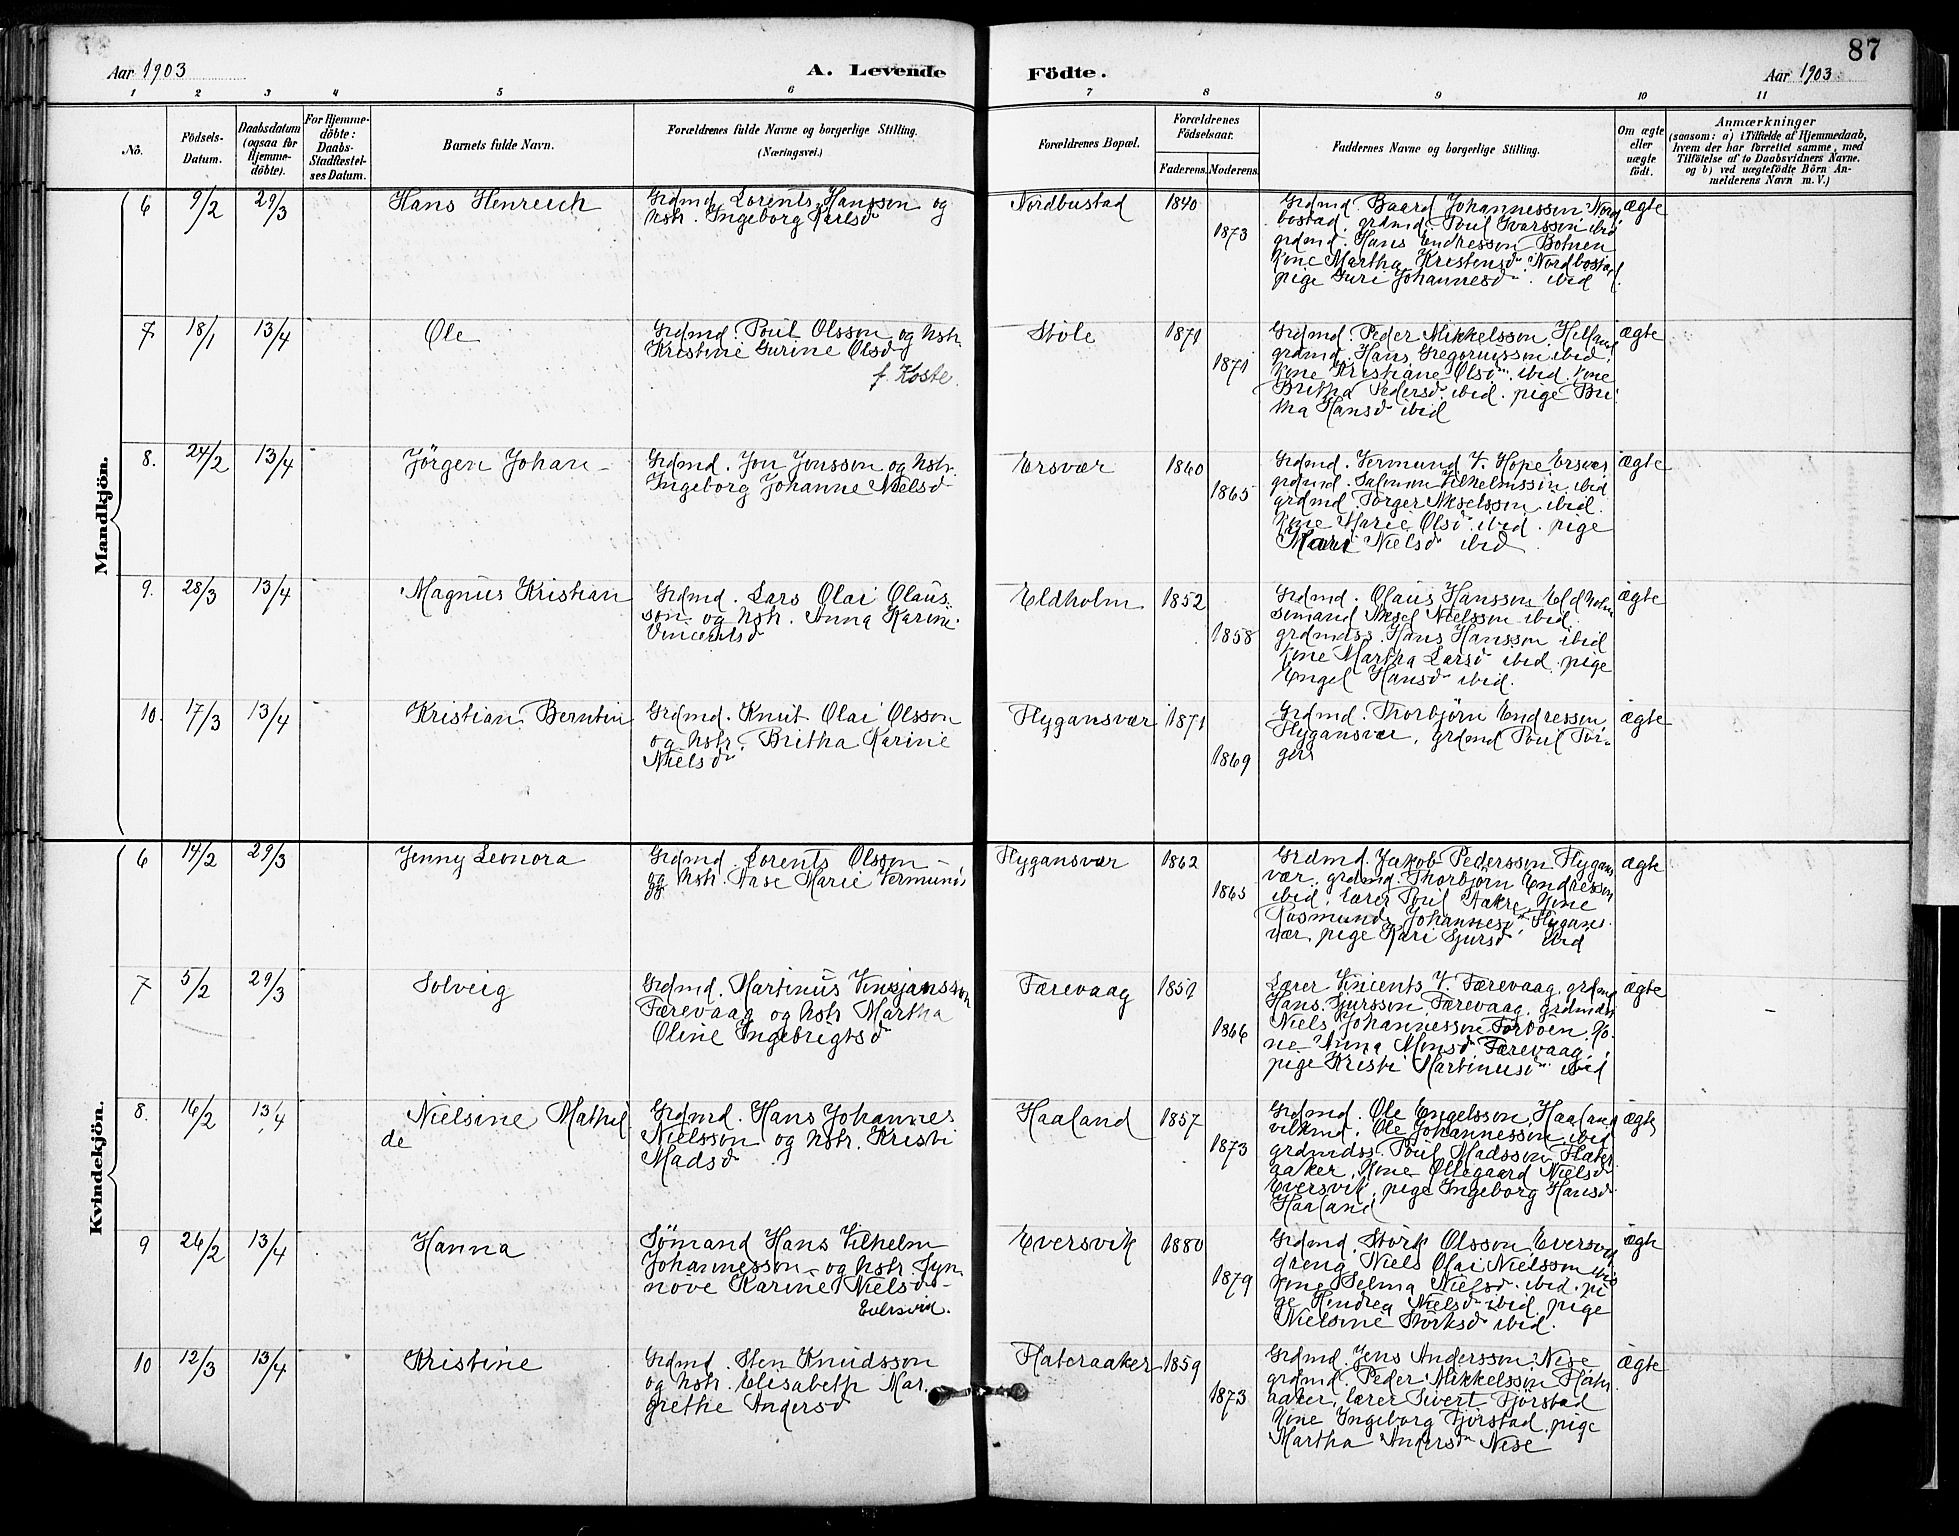 Aar 1903
A. Levende
Födte.
87
Aar 1903
1 2 3 4 5 6 7 8 9 10 11
No.
Födsels-
Datum.
Daabsdatum
(ogsaa för
Hjemme-
döbte).
For Hjemme-
döbte:
Daabs-
Stadfæstel-
ses Datum.
Barnets fulde Navn.
Forældrenes fulde Navne og borgerlige Stilling.
(Næringsvei.)
Forældrenes Bopæl.
Forældrenes
Födselsaar.
Faderens. Moderens.
Faddernes Navne og borgerlige Stilling.
Om ægte
eller
uægte
födt.
Anmærkninger
(saasom: a) i Tilfælde af Hjemmedaab,
hvem der har forrettet samme, med
Tilföielse af to Daabsvidners Navne,
og b) ved uægtefödte Börn An-
melderens Navn m. V.)
Mandkjön.
6 9/2 29/3
Hans Henreich
Grdmd. Lorents Hansson og
hstr. Ingeborg Karlsd
Nordbustad
1840
1873
Grdmd. Baard Johannesson, Nord
bostad, grdmd. Poul Ivarsson ibid
grdmd. Hans Endresson Botnen
Kone Martha Kristensd. Nordbostad.
pige Guri Johannesd. ibid
ægte
7. 18/1 13/4
Ole
Grdmd. Poul Olsson og hstr.
Kristine Gurine Olsd
f. Koste.
Stöle
1871
1871
Grdmd. Peder Mikkelsson. Helland
grdmd. Hans Gregoriusson ibid.
Kone Kristiane Olsd. ibid. Kone
Britha Pedersd. ibid. pige Bri
tha Hansd ibid
ægte
8. 24/2 13/4
Jörgen Johan -
Grdmd. Jon Jonsson og hstr.
Ingeborg Johanne Nielsd
Ersvær
1860
1865
Grdmd. Vermund V. Hope Ersvær
grdmd. Salmon Vilhelmssön ibid
grdmd. Torger Akselsson ibid.
Kone Marie Olsd. ibid. pige
Mari Nielsd ibid
ægte
9. 28/3 13/4
Magnus Kristian
Grdmd. Lars Olai Olaus-
son og hstr. Anna Karine
Vincentsd
Eldholm
1852
1858
Grdmd. Olaus Hansson Eldholm
sömand Aksel Nielsson ibid.
grdmdss. Hans Hansson ibid
Kone Martha Larsd ibid. pige
Engel Hansd ibid.
ægte
10. 17/3 13/4
Kristian Berntin
Grdmd. Knut Olai Olsson
og hstr. Britha Karine
Nielsd
Flygansvær
1871
1869
Grdmd. Thorbjörn Endresson
Flygansvær, grdmd Poul Tor-
gers
ægte
Kvindekjön.
6 14/2 29/3
Jenny Leonora
Grdmd. Lorents Olsson -
og hstr. Aase Marie Vermunds
Flygansvær
1862
1865
Grdmd. Jakob Pedersson Flygans
vær, grdmd. Thorbjörn Endresson
ibid, Lærer Poul Aakre, Kone
Rasmunda Johannesd, Flygans-
vær, pige Kari Sjursd ibid
ægte
7 5/2 29/3
Solveig
Grdmd. Martinus Vinsjansson
Færevaag og hstr Martha
Oline Ingebrigtsd
Færevaag
1851
1866
Lærer Vincents V. Færevaag, grdmd
Hans Sjursson Færevaag, grdmdss
Niels Johannesson Torboen. Ko-
ne Anna Monsd Færevaag,
pige Kristi Martinusd ibid
ægte
8. 16/2 13/4
Nielsine Mathil
de
Grdmd. Hans Johannes
Nielsson og hstr. Kristi
Madsd
Haaland
1857
1873
Grdmd. Ole Engelsson Haaland
Ole Johannesson ibid
grdmdss. Poul Madsson Flater
aaker, Kone Ollegaard Nielsd
Eversvik, pige Ingeborg Hansd
Haaland
ægte
9 26/2 13/4
Hanna
Sømand Hans Vilhelm
Johannesson og hstr. Syn-
növe Karine Nielsd
Eversvik.
Eversvik
1880
1879
Grdmd. Störk Olsson Eversvik
dreng Niels Olai Nielsson ibid
Kone Selma Nielsd. ibid. pi
ge Hendrea Nielsd ibid. pige
Nielsine Störksd ibid.
ægte
10 12/3 13/4
Kristine
Grdmd. Sten Knudsson
og hstr. Elisabeth Mar.
grethe Andersd
Flateraaker
1859
1873
Grdmd. Jens Andersson Nese
grdmd. Peder Mikkelsson Flater
aaker, lærer Sivert Fjörstad
Kone Ingeborg Fjörstad, pige
Martha Andersd Nese
ægte